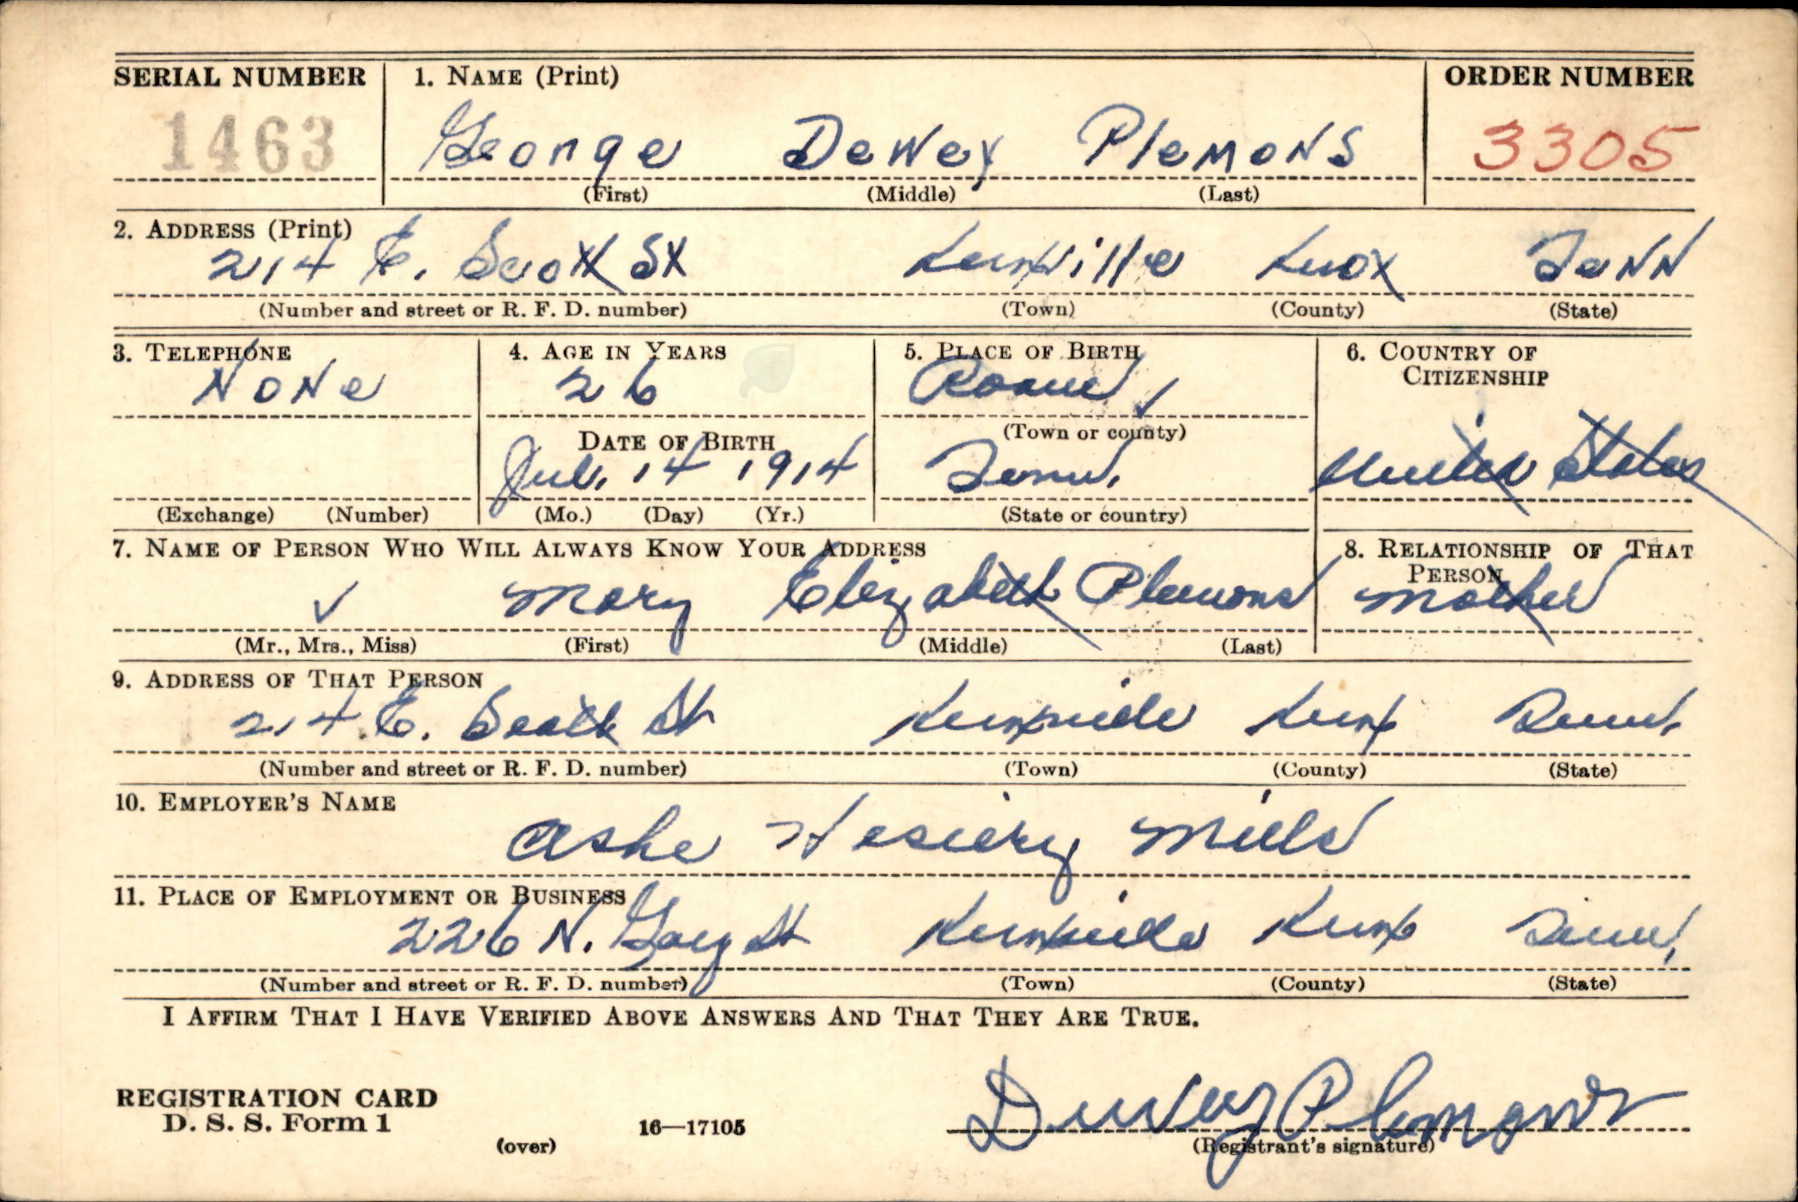 SERIAL NUMBER 1. NAME (Print) ORDER NUMBER
1463 George Dewey Plemons 3305
(First) (Middle) (Last)
2. ADDRESS (Print)
214 E. Scott St Knoxville Knox Tenn
(Number and street or R. F. D. number) (Town) (County) (State)
3. TELEPHONE 4. AGE IN YEARS 5. PLACE OF BIRTH 6. COUNTRY OF CITIZENSHIP
None 26 Roane
DATE OF BIRTH (Town or county)
Jul. 14 1914 Tenn. United States
(Exchange) (Number) (Mo.) (Day) (Yr.) (State or country)
7. NAME OF PERSON WHO WILL ALWAYS KNOW YOUR ADDRESS 8. RELATIONSHIP OF THAT PERSON
Mary Elizabeth Plemons Mother
(Mr., Mrs., Miss) (First) (Middle) (Last)
9. ADDRESS OF THAT PERSON
214 E. Scott St Knoxville Knox Tenn.
(Number and street or R. F. D. number) (Town) (County) (State)
10. EMPLOYER'S NAME
Ashe Hosiery Mills
11. PLACE OF EMPLOYMENT OR BUSINESS
226 N. Gay St Knoxville Knox Tenn.
(Number and street or R. F. D. number) (Town) (County) (State)
I AFFIRM THAT I HAVE VERIFIED ABOVE ANSWERS AND THAT THEY ARE TRUE.
Dewey Plemons
REGISTRATION CARD
D. S. S. Form 1
(over) 16—17105 (Registrant's signature)